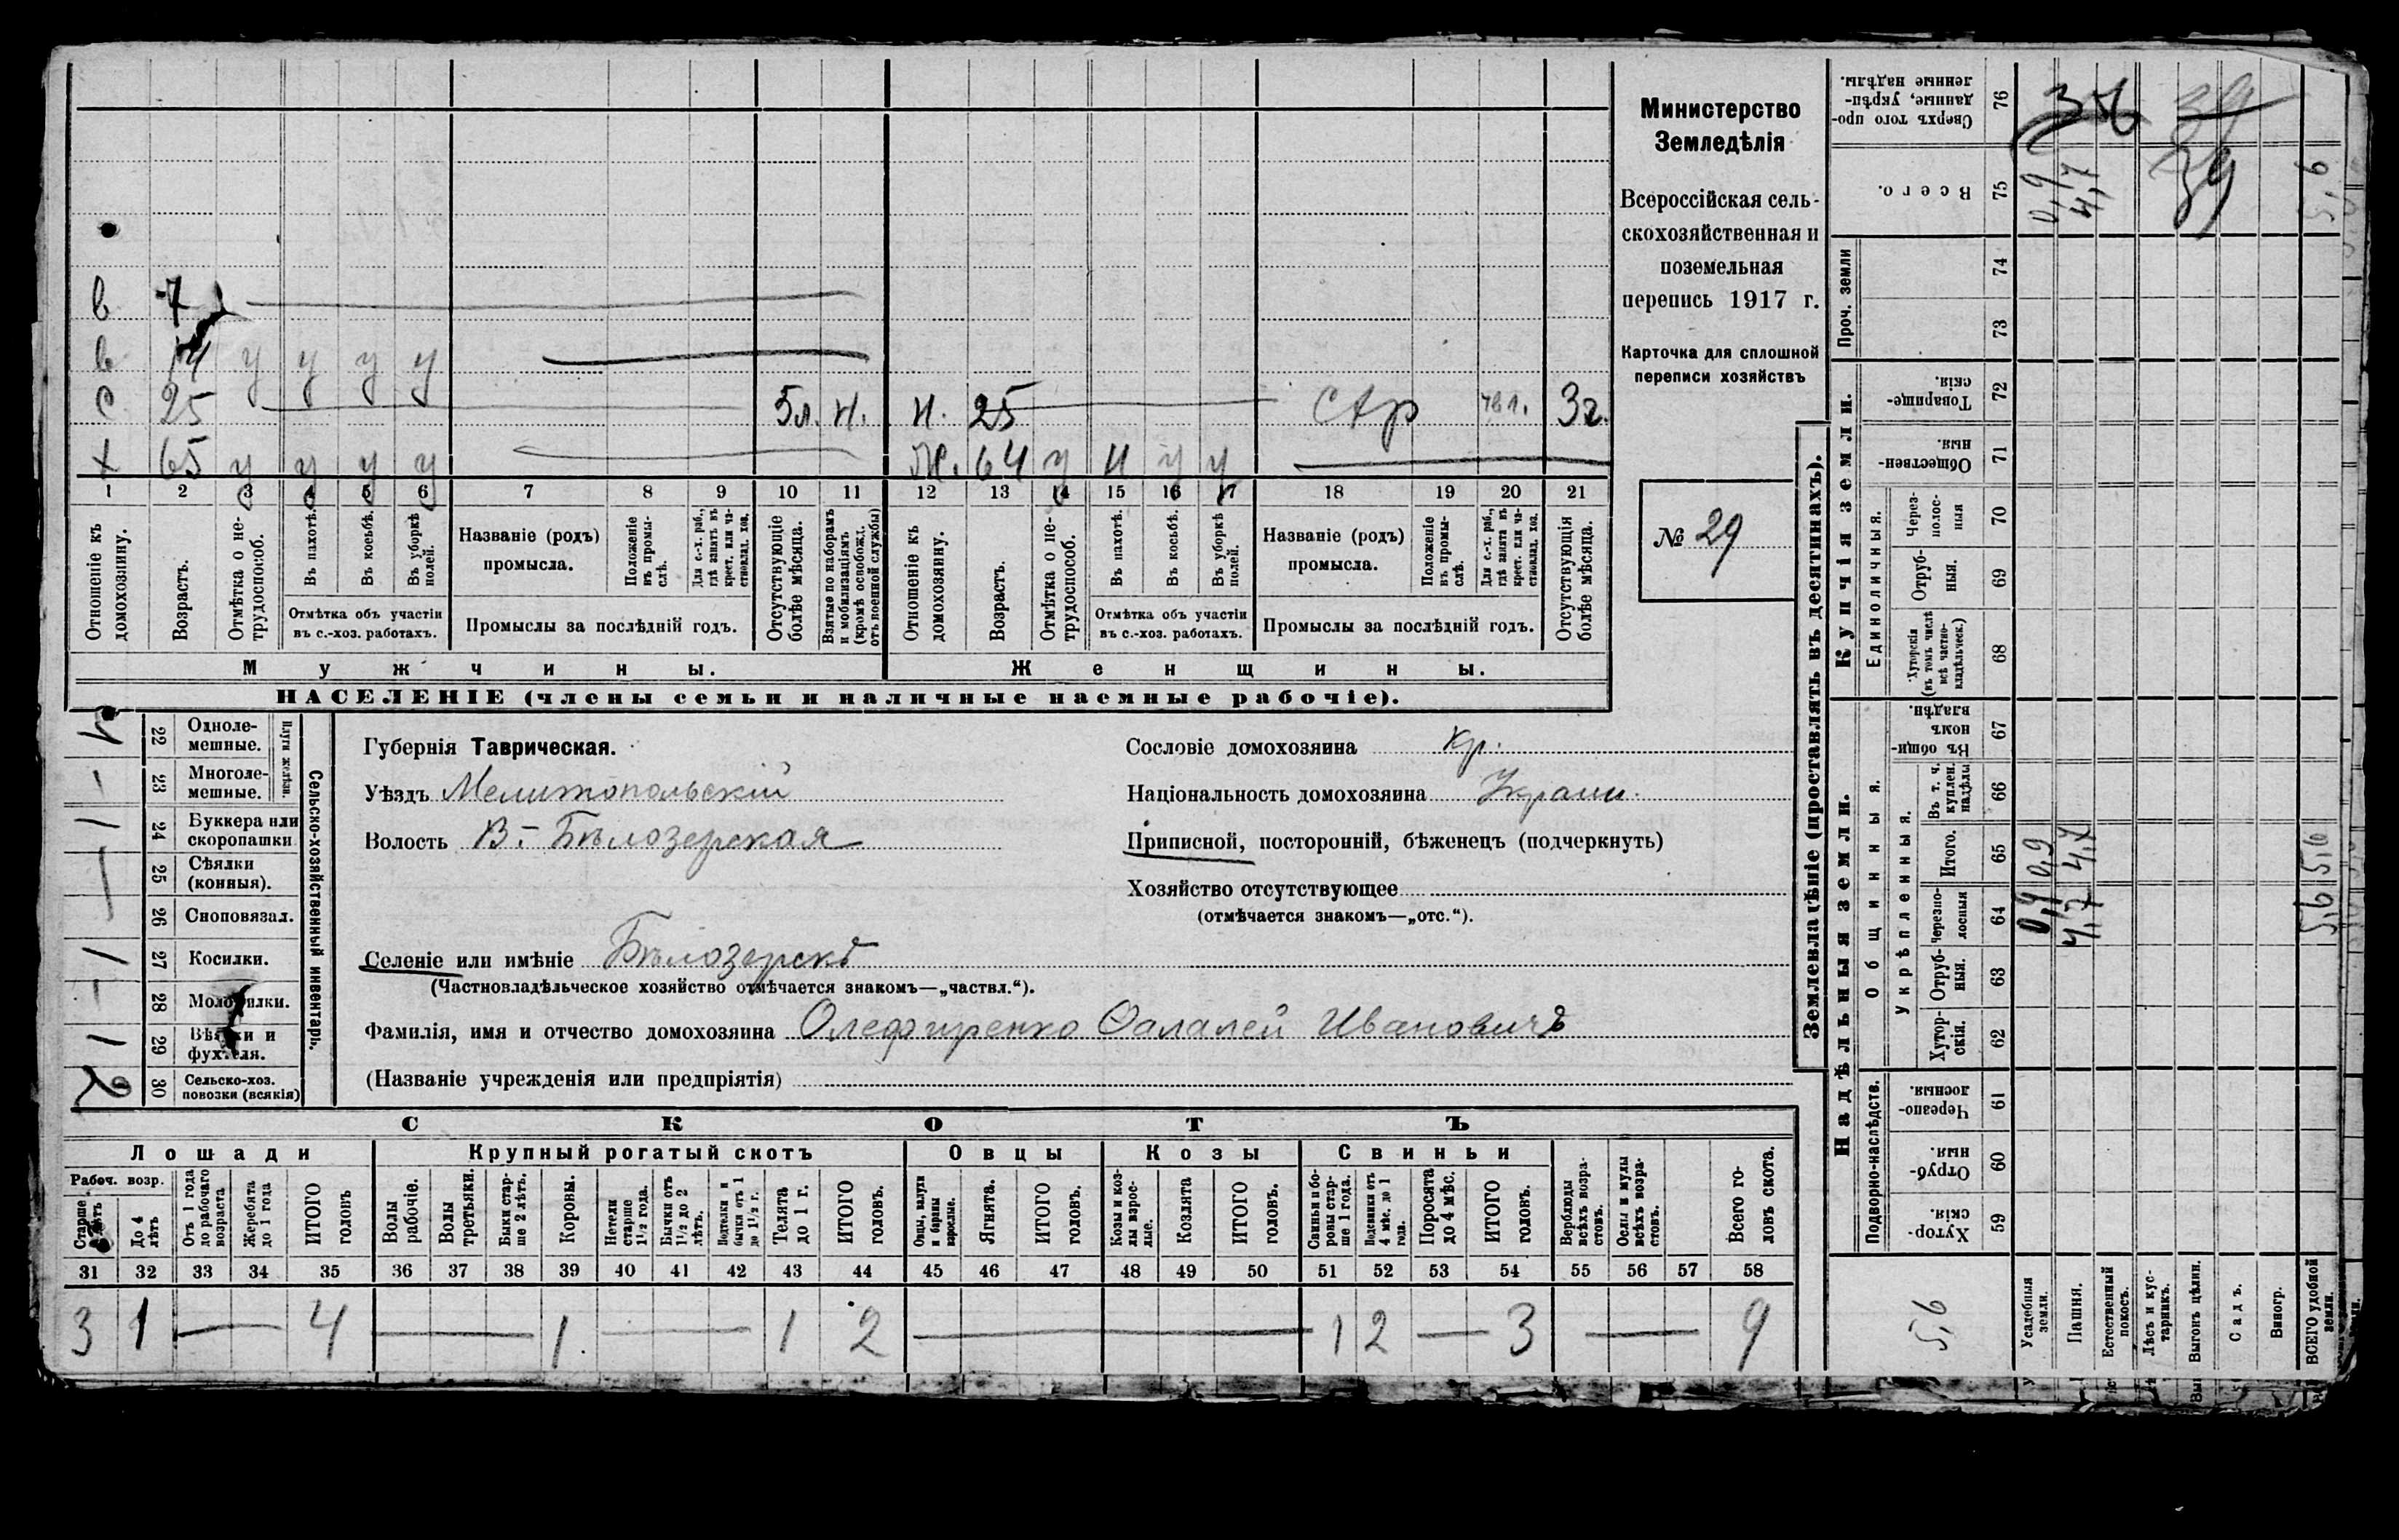 Министерство
Земледѣлія
Всероссійская сель-
скохозяйственная и
поземельная
перепись 1917 г.
Карточка для сплошной
переписи хозяйствъ
№ 29
в 7
в 14 у у у у
с 25 5л. н. н. 25 стр 3г.
х 65 у у у у ж. 64 у н у у
1 2 3 4 5 6 7 8 9 10 11 12 13 14 15 16 17 18 19 20 21
Отношеніе къ домохозяину.
Возрастъ.
Отмѣтка о не-трудоспособ.
Въ пахотѣ.
Въ косьбѣ.
Въ уборкѣ полей.
Отмѣтка объ участіи
въ с.-хоз. работахъ.
Названіе (родъ)
промысла.
Положеніе въ промы-слѣ.
Для с.-х. раб., гдѣ занятъ въ крест. или ча-стновлад. хоз.
Промыслы за послѣдній годъ.
Отсутствующіе болѣе мѣсяца.
Взятые по наборамъ и мобилизаціямъ (кромѣ освобожд. отъ военной службы)
Отношеніе къ домохозяину.
Возрастъ.
Отмѣтка о не-трудоспособ.
Въ пахотѣ.
Въ косьбѣ.
Въ уборкѣ полей.
Отмѣтка объ участіи
въ с.-хоз. работахъ.
Названіе (родъ)
промысла.
Положеніе въ промы-слѣ.
Для с.-х. раб., гдѣ занята въ крест. или ча-стновлад. хоз.
Промыслы за послѣдній годъ.
Отсутствующія болѣе мѣсяца.
Мужчины. Женщины.
НАСЕЛЕНІЕ (члены семьи и наличные наемные рабочіе).
Сельско-хозяйственный инвентарь.
Плуги желѣзн.
22 Одноле-мешные.
23 Многоле-мешные.
24 Буккера или скоропашки
25 Сѣялки (конныя).
26 Сноповязал.
27 Косилки.
28 Молотилки.
29 Вѣялки и фухтеля.
30 Сельско-хоз. повозки (всякія)
Губернія Таврическая.
Уѣздъ Мелитопольскій
Волость В.-Бѣлозерская
Селеніе или имѣніе Бѣлозерскѣ
(Частновладѣльческое хозяйство отмѣчается знакомъ—„частвл.“).
Фамилія, имя и отчество домохозяина Олефиренко Фалалей Ивановичъ
(Названіе учрежденія или предпріятія)
Сословіе домохозяина кр.
Національность домохозяина Украин.
Приписной, посторонній, бѣженецъ (подчеркнуть)
Хозяйство отсутствующее
(отмѣчается знакомъ—„отс.“).
СКОТЪ
Лошади Крупный рогатый скотъ Овцы Козы Свиньи
Рабоч. возр.
Старше лѣтъ
До 4 лѣтъ
Отъ 1 года до рабочаго возраста
Жеребята до 1 года
ИТОГО головъ
Волы рабочіе.
Волы третьяки.
Быки стар-ше 2 лѣтъ.
Коровы.
Нетели старше 1½ года.
Бычки отъ 1½ до 2 лѣтъ.
Подтелки и бычки отъ 1 до 1½ г.
Телята до 1 г.
ИТОГО головъ.
Овцы, валухи и бараны взрослые.
Ягнята.
ИТОГО головъ.
Козы и коз-лы взрос-лые.
Козлята
ИТОГО головъ.
Свиньи и бо-ровы стар-ше 1 года.
Подсвинки отъ 4 мѣс. до 1 года.
Поросята до 4 мѣс.
ИТОГО головъ.
Верблюды всѣхъ возра-стовъ.
Ослы и мулы всѣхъ возра-стовъ.
Всего го-ловъ скота.
31 32 33 34 35 36 37 38 39 40 41 42 43 44 45 46 47 48 49 50 51 52 53 54 55 56 57 58
3 1 — 4 — 1 — 1 2 — 1 2 — 3 — 9
Землевладѣніе (проставлять въ десятинахъ).
Надѣльныя земли. Купчія земли. Проч. земли
Подворно-наслѣдств.
Общинныя.
Укрѣпленныя.
Единоличныя.
59 Хутор-скія.
60 Отруб-ныя.
61 Черезпо-лосныя.
62 Хутор-скія.
63 Отруб-ныя.
64 Черезпо-лосныя
65 Итого.
66 Въ т. ч. куплен. надѣлы
67 Въ общи-номъ владѣн.
68 Хуторскія (въ томъ числѣ всѣ частно-владѣльческ.)
69 Отруб-ныя.
70 Через-полос-ныя
71 Обществен-ныя.
72 Товарище-скія.
73
74
75 Всего.
76 Сверхъ того про-данные, укрѣп-ленные надѣлы.
Усадебныя земли. 0,9 0,9 0,9
Пашня. 4,7 4,7 4,7
Естественный покосъ.
Лѣсъ и кус-тарникъ.
Выгонъ цѣлин.
Садъ.
Виногр.
ВСЕГО удобной земли. 5,6 5,6 5,6
5,6
39
39